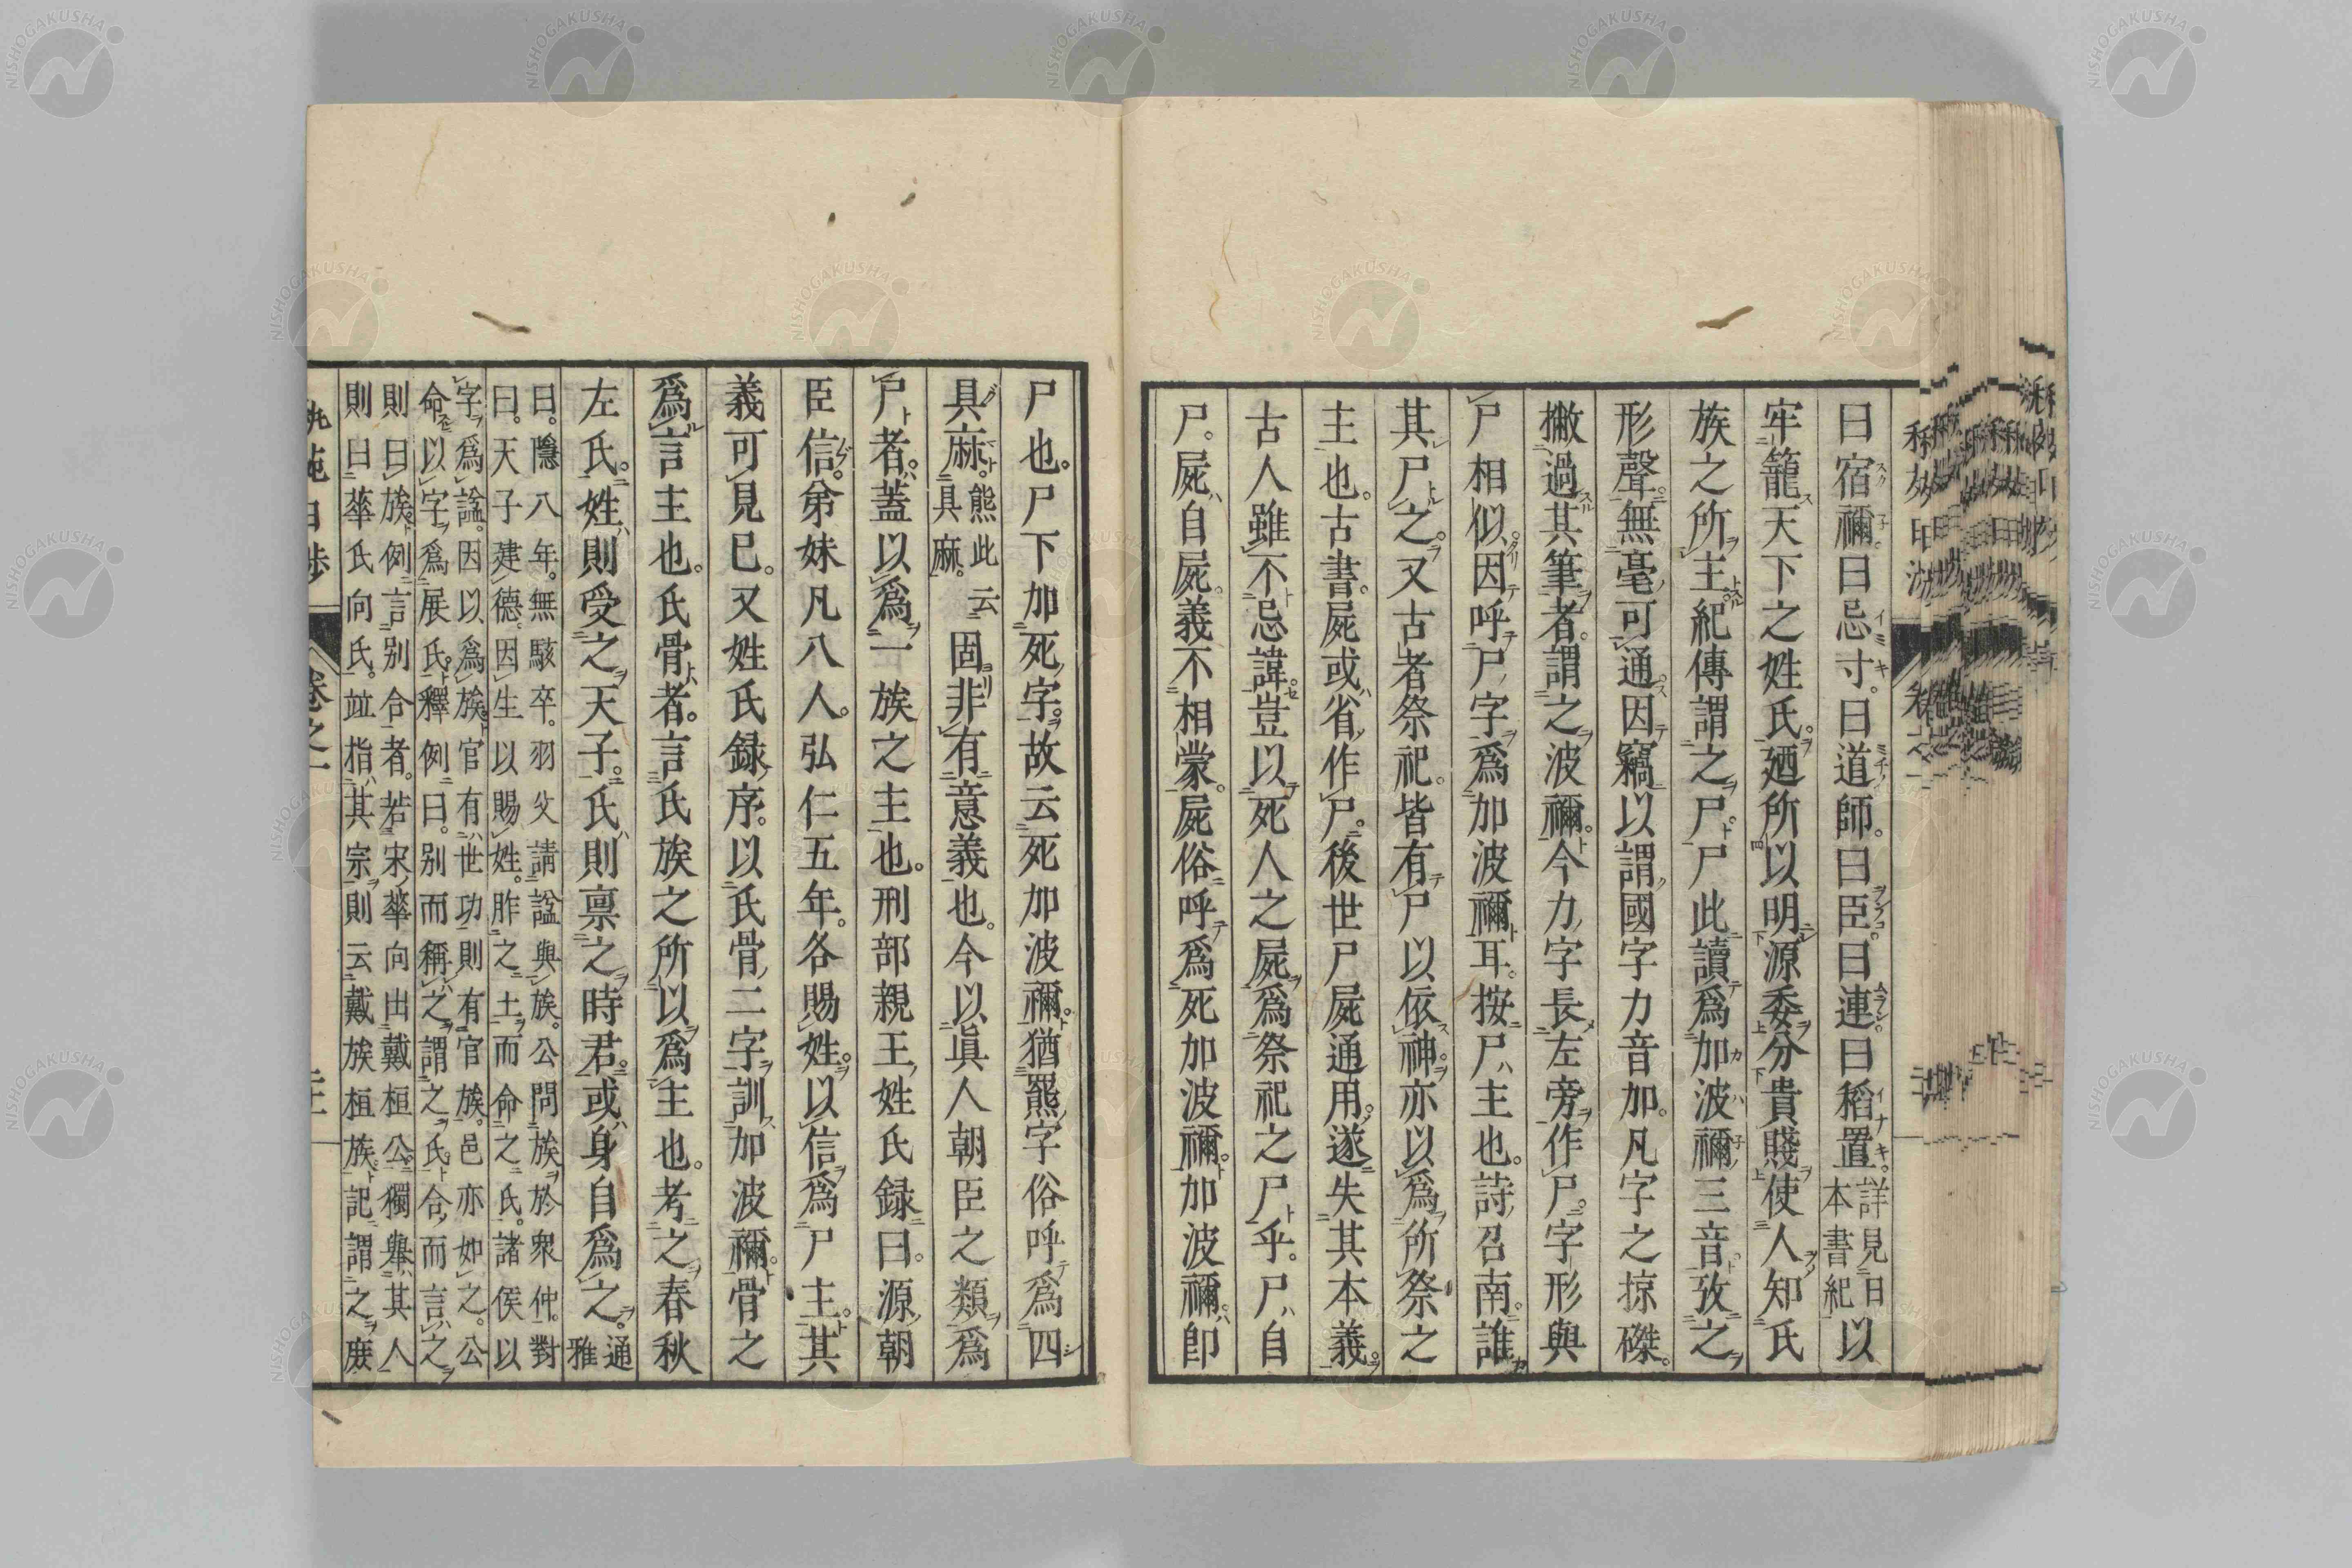 曰宿禰。曰忌寸。曰道師。曰臣。曰連。曰稻置。詳見日本書紀以
牢籠天下之姓氏。廼所以明源委分貴賤使人知氏
族之所主紀傳謂之尸。尸此讀爲加波禰三音。攷之
形聲。無毫可通。因竊以謂國字力音加。凡字之掠磔。
撇過其筆者。謂之波禰。今力字長左旁作尸。字形與
尸相似。因呼尸字爲加波禰耳。按尸主也。詩召南。誰
其尸之。又古者祭祀。皆有尸以依神。亦以爲所祭之
主也。古書。屍或省作尸。後世尸屍通用。遂失其本義。
古人雖不忌諱。豈以死人之屍爲祭祀之尸乎。尸自
尸。屍自屍。義不相蒙。屍俗呼爲死加波禰。加波禰。卽
尸也。尸下加死字。故云死加波禰。猶羆字俗呼爲四
具麻。熊此云具麻。固非有意義也。今以眞人朝臣之類爲
尸者。蓋以爲一族之主也。刑部親王姓氏録曰。源朝
臣信。弟妹凡八人。弘仁五年。各賜姓。以信爲尸主。其
義可見已。又姓氏録序。以氏骨二字訓加波禰。骨之
爲言主也。氏骨者。言氏族之所以爲主也。考之春秋
左氏。姓則受之天子。氏則禀之時君。或身自爲之。通雅
曰。隱八年。無駭卒。羽父請諡與族。公問族於衆仲。對
曰。天子建德。因生以賜姓。胙之土而命之氏。諸侯以
字爲諡。因以爲族。官有世功則有官族。邑亦如之。公
命以字爲展氏。釋例曰。別而稱之謂之氏。合而言之
則曰族。例言別合者。若宋華向出戴桓公。獨舉其人
則曰華氏向氏。竝指其宗則云戴族桓族。記謂之庶
卷之一